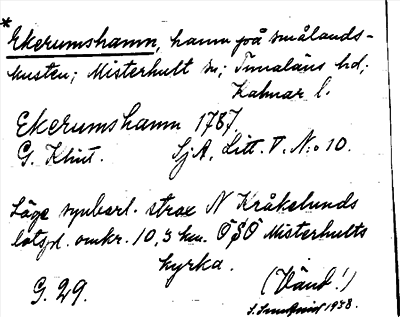 *Ekerumshamn, hamn på smålands-
kusten; Misterhult sn; Tunaläns hd;
Kalmar l.
Ekerumshamn 1787.
G. Klint. SjA, Litt. V. N:o 10.
Läge synbarl. strax N Kråkelunds
lotspl. omkr. 10,3 km. ÖSÖ Misterhults
kyrka.
G. 29. (Vänd!)
1938.